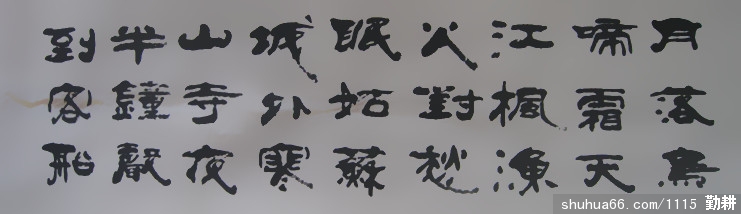 月落烏
啼霜天
江楓漁
火對愁
眠姑蘇
城外寒
山寺夜
半鐘聲
到客船
shuhua66.com/1115 勤耕